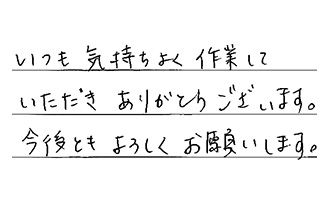 いつも 気持ちよく 作業して
いただき ありがとう ございます。
今後とも よろしく お願いします。